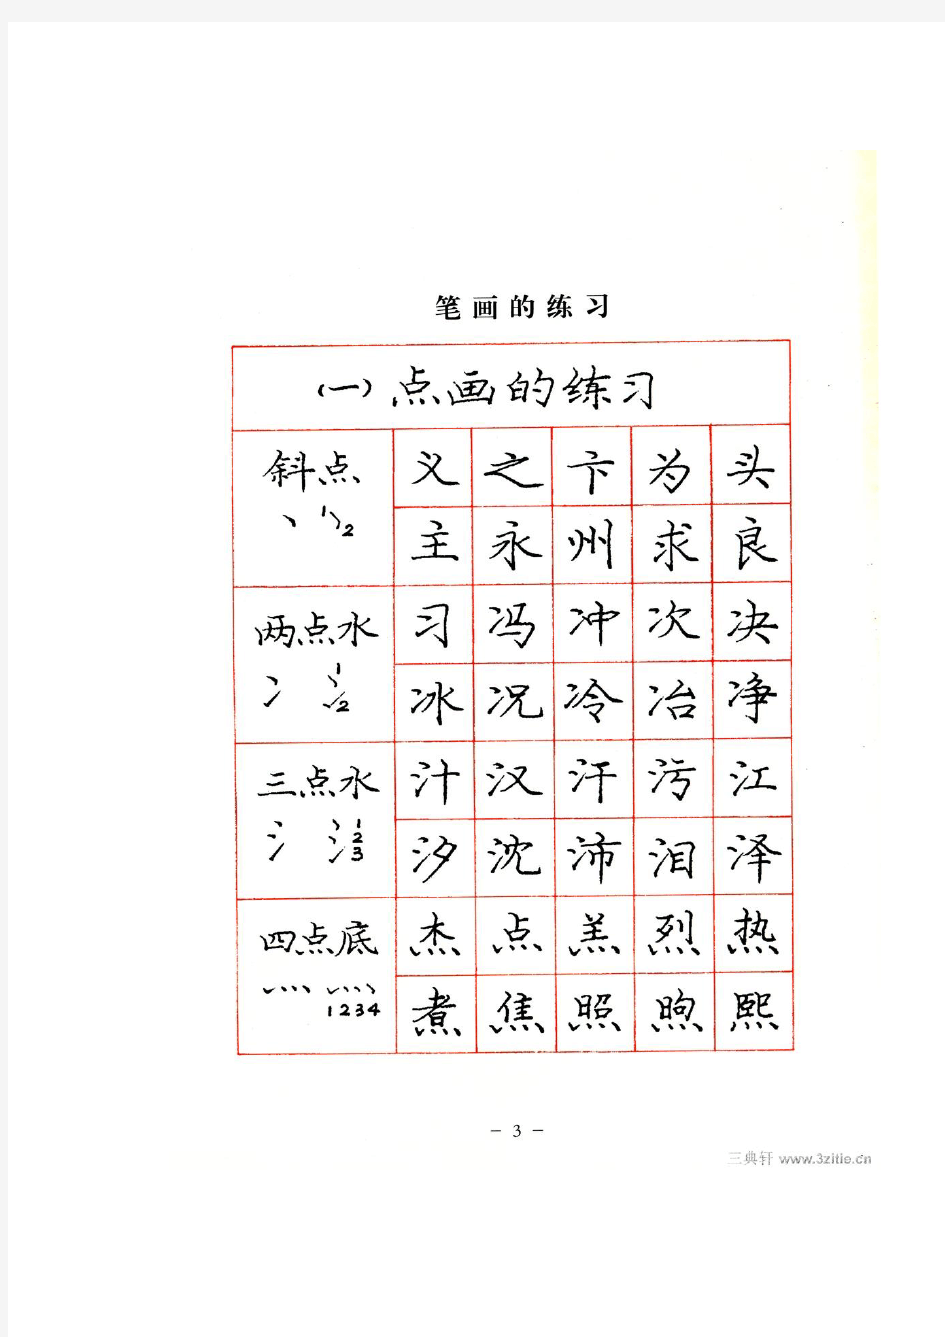 笔画的练习
(一)点画的练习
斜点 义 之 卞 为 头
丶 1 2 主 永 州 求 良
两点水 习 冯 冲 次 决
冫 1 2 冰 况 冷 冶 净
三点水 汁 汉 汗 污 江
氵 1 2 3 汐 沈 沛 泪 泽
四点底 杰 点 羔 烈 热
灬 1234 煮 焦 照 煦 熙
- 3 -
三典轩 www.3zitie.cn